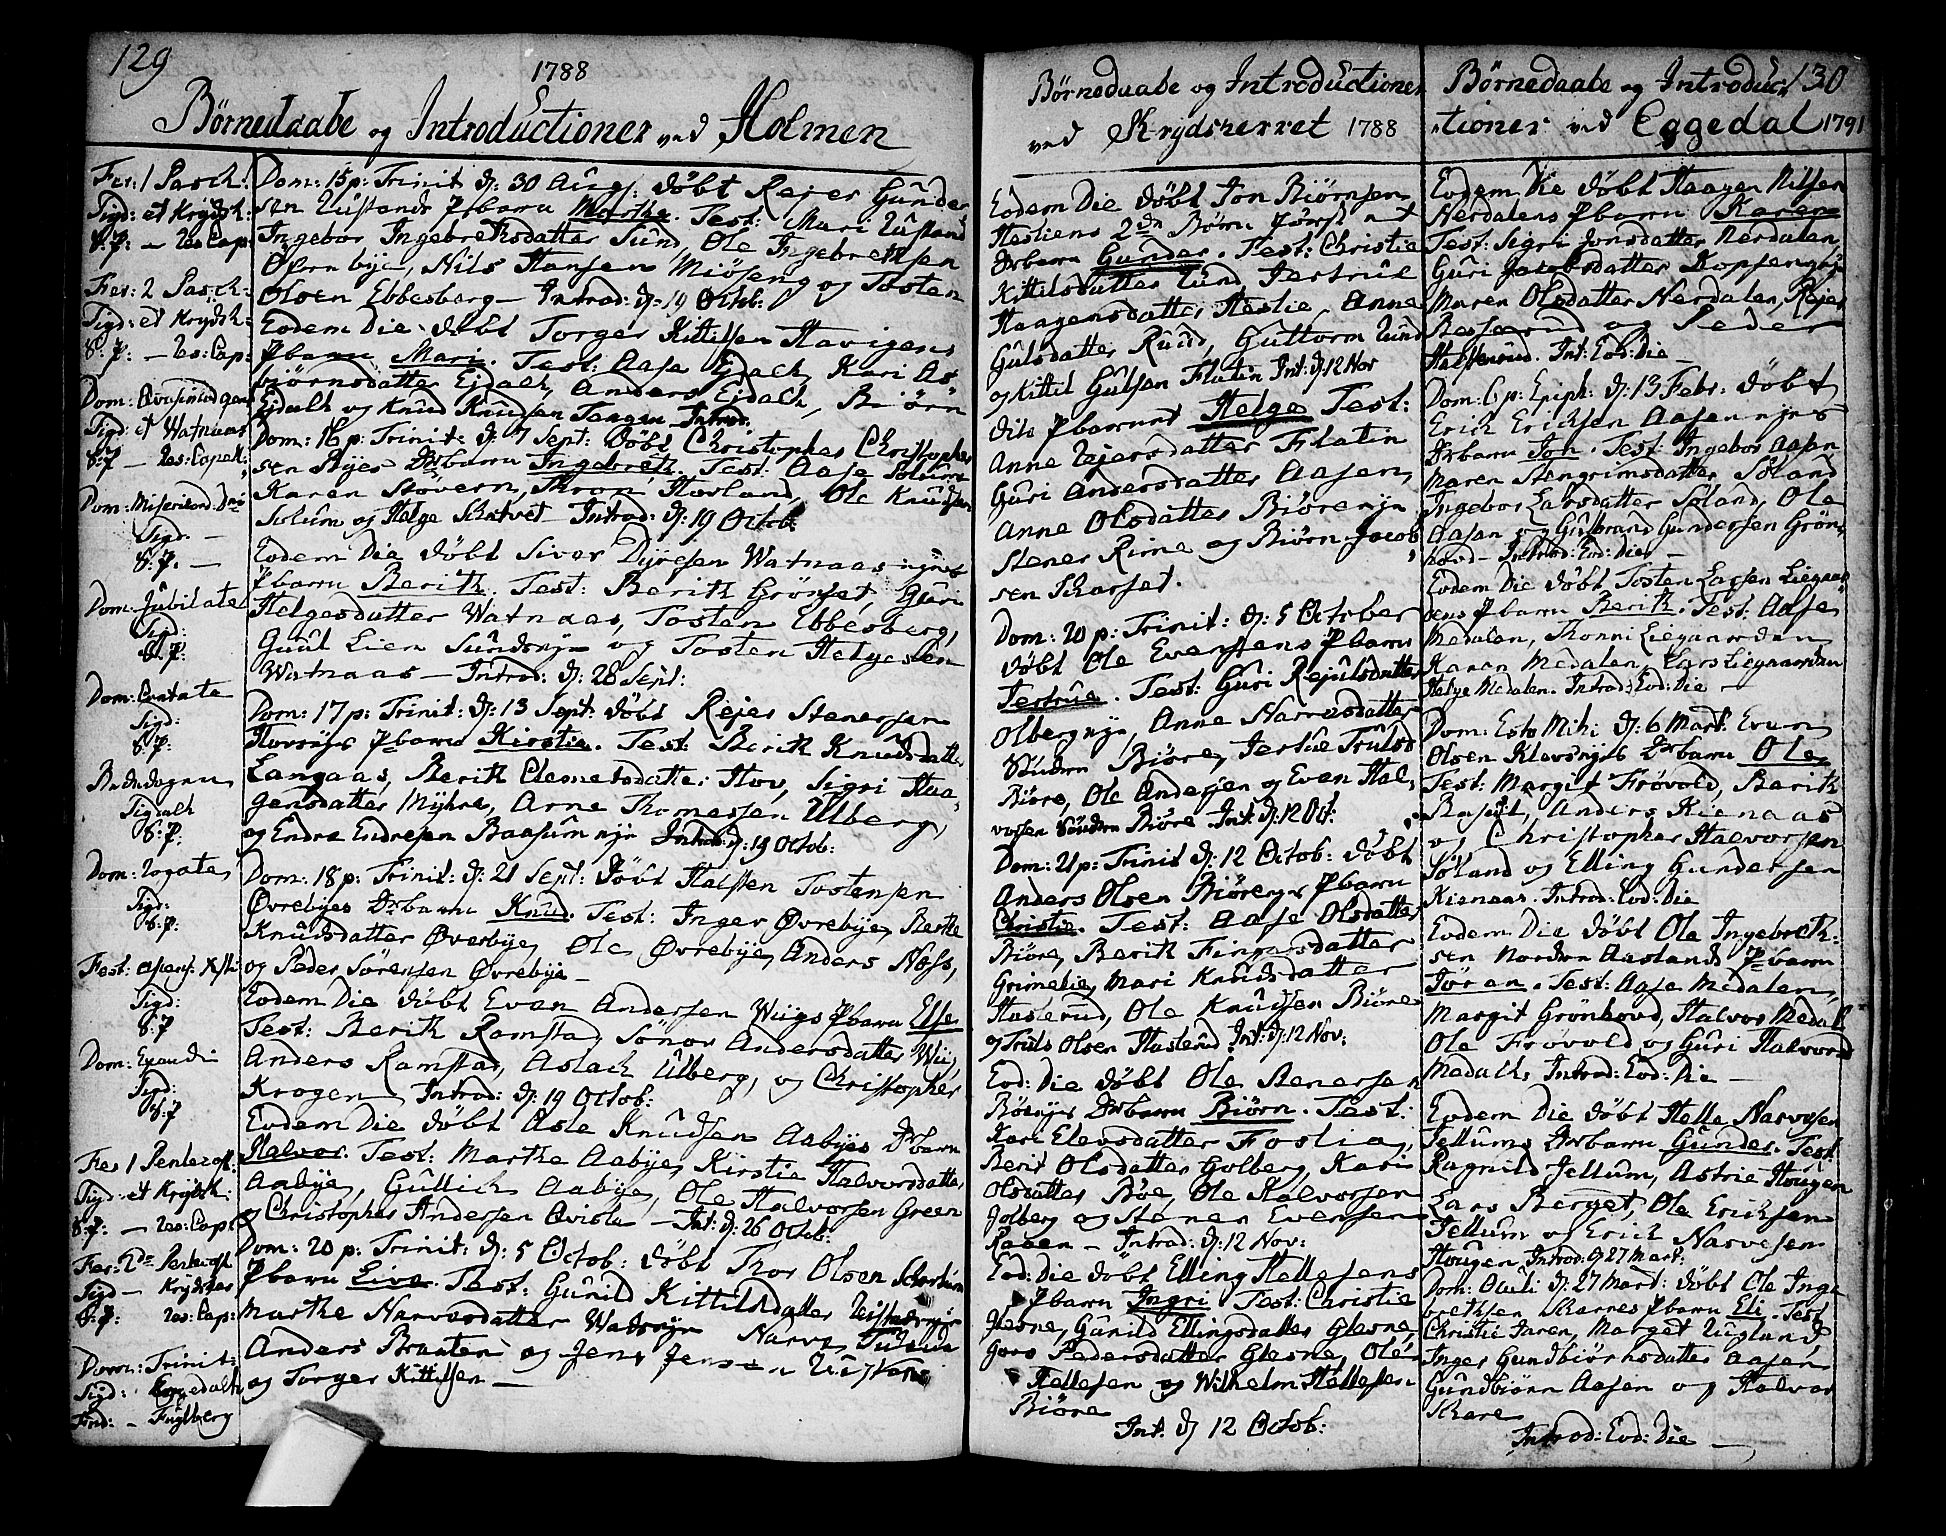 129
1788
Börnedaabe og Introductioner ved Holmen
Fer: 1 Pasch:
Sigd: et Krydsh:
S: P: — Res: Cap:
Fer: 2 Pasch:
Sigd: et Krydsh:
S: P: — Res: Cap:
Dom: Qvasimodogen
Sigd: et Watnaas
S: P — Res: Capell:
Dom: Misericord: Dni
Sigd. —
S: P. —
Dom: Jubilate
Sigd:
S: P.
Dom: Cantate
Sigd:
S: P:
Bededagen
Sigdalh
S: P:
Dom: Rogate
Sigd:
S: P:
Fest: Xsti
Sigd:
S: P
Dom: Exaudi
Sigd:
S: P
Fer 1 Pentecost:
Sigd: et Krydsh:
S: P: — Res: Cap:
Fer: 2de Pentecost
Sigd — Krydsher
S: P: Res: Cap:
Dom: Trinit:
Sigd: Eggedalh
Fuglberg
Dom: 15 p: Trinit d: 30 Aug: döbt Rejer Gunder
sen Rustands Pbarn Marthe. Test: Mari Rustand
Ingebor Ingebretksdatter Sund, Ole Ingebretksen
Öfvrebye, Nils Hansen Miöseng og Tosten
Olsen Ebbesberg — Introd: d: 19 Octob:
Eodem Die döbt Torger Kittilsen Havigens
Pbarn Mari. Test: Aase Ejdalh, Kari As
biörnsdatter Ejdalh, Anders Ejdalh, Biörn
Ejdalh og Knud Knudsen Tangen Introd.
Dom: 16 p: Trinit: d: 7 Sept: Döbt Christopher Christopher
sen Ryes Drbarn Ingebreth. Test: Aase Solum
Karen Stövern, Thron Hovland, Ole Knudsen
Solum og Helge Skatvet — Introd: d: 19 Octob:
Eodem Die döbt Siver Dyresen Watnaas ejes
Pbarn Berith. Test: Berith Grönset, Guri
Helgesdatter Watnaas, Tosten Ebbesberg,
Guul Lien Sundseje og Tosten Helgesen
Watnaas — Introd: d: 28 Sept:
Dom: 17 p: Trinit: d: 13 Sept: döbt Rejer Stenersen
Hovsejes Pbarn Kirstie. Test: Berith Knudsdatter
Langaas, Berith Clemetsdatter Hov, Sigri Haa
gensdatter Myhre, Arne Thomessen Ulberg,
og Endre Endresen Baasumeje Introd: d: 19 Octob:
Dom: 18 p: Trinit: d: 21 Sept: Döbt Halsten Tostensen
Øvrebyes Drbarn Knud. Test: Inger Øvrebye, Berthe
Knudsdatter Øverbye, Ole Øvrebye, Anders Noss,
og Peder Sörensen Øvrebye —
Eodem Die döbt Even Andersen Wiigs Pbarn Else
Test: Berith Ramstad, Sönov Andersdatter Wiig,
Anders Ramstad, Aslach Ulberg, og Christopher
Krogen Introd: d: 19 Octob:
Eodem Die döbt Asle Knudsen Aabyes Drbarn
Halvor. Test: Marthe Aabye, Kirstie Halvorsdatter
Aabye, Gullich Aabye, Ole Halvorsen Green
og Christopher Andersen Qvisle — Int: d: 26 Octob:
Dom: 20 p: Trinit: d: 5 Octob: döbt Thor Olsen
Pbarn Live. Test: Gunild Kittilsdatter Rustandeje
Marthe Narvesdatter Watseje Narve
Anders Braaten og Jens Jensen Rustand
og Torger Kittilsen —
Börnedaabe og Introductioner
ved Krydsherret 1788
Eodem Die döbt Jon Biörnsen
Hesliens 2de Börn först et
Drbarn Gunder. Test: Christie
Kittilsdatter Lund, Jertrue
Haagensdatter Heslie, Anne
Gulsdatter Ruud, Guttorm Lund
og Kittil Gulsen Flatin Int: d: 12 Nov
dito Pbarnet Helge Test:
Anne Rejersdatter Flatin
Guri Andersdatter Aasen,
Anne Olsdatter Biöreeje
Stener Rime og Biörn Jacob
sen Skarset.
Dom: 20 p: Trinit: d: 5 October
döbt Ole Evensens Pbarn
Jertrue. Test: Guri Rejulsdatter
Olbergeje, Anne Narvesdatter
Söndre Biöre, Jertue Truls
Biöre, Ole Andersen og Even Hal,
vorsen Söndre Biöre Int: d: 12 Oct:
Dom: 21 p: Trinit d: 12 Octob: döbt
Anders Olsen Biöreejes Pbarn
Christie. Test: Aase Olsdatter
Biöre, Berith Fingarsdatter
Grimelie, Mari Knudsdatter
Haslerud, Ole Knudsen Biöre
og Truls Olsen Haslerud. Int: d: 12 Nov:
Eod: Die döbt Ole Stenersen
Böeejes Drbarn Biörn. Test:
Kari Elevsdatter Foslie,
Berit Olsdatter Golberg, Kari
Olsdatter Böe, Ole Halvorsen
Golberg og Stener Evensen
Raaen — Introd: d: 12 Nov:
Eod: Die döbt Elling Hellesens
Pbarn Ingri. Test: Christie
Glesne, Gunild Ellingsdatter Glesne,
Goro Pedersdatter Glesne, Ole
Hellesen og Wilhelm Hellesen
Biöre
Int. d 12 Octob:
Börnedaabe og Introduc 130
tioner ved Eggedal 1791
Eodem Die döbt Haagen Nilsen
Nerdalens Pbarn Karen
Test: Sigri Jonsdatter Nerdalen,
Guri Jacobsdatter Kopsengeje
Maren Olsdatter Nerdalen, Rejer
Besserud og Peder
Halstensrud. Int: Eod: Die —
Dom: 6 p: Epiph: d: 13 Febr: döbt
Erich Erichsen Aasenejes
Drbarn Jon. Test: Ingebor Aasen
Maren Stengrimsdatter Söland
Ingebor Larsdatter Söland, Ole
Aasen og Gulbrand Gundersen Grön
hovd — Introd: Eod: Die —
Eodem Die döbt Tosten Larsen Liegaar
dens Pbarn Berith. Test: Aase
Medalen, Thonni Liegaarden
Karen Medalen, Lars Liegaarden
Helge Medalen. Introd: Eod: Die —
Dom: Esto Mihi d: 6 Mart: Even
Olsen Klevsejes Drbarn Ole
Test: Margit Frövold, Berith
Anders Kienaas
og Christopher Halvorsen
Söland og Elling Gundersen
Kienaas. Introd: Eod: Die
Eodem Die döbt Ole Ingebreth
sen Nordre Aaslands Pbarn
Jöran. Test: Aase Medalen,
Margit Grönhovd, Halvor Medal
Ole Frövold og Guri Halvorsd
Medalh, Introd: Eod: Die —
Eodem Die döbt Helle Narvesen
Tellums Drbarn Gunder. Test:
Ragnild Jellum, Astrie Hougen
Lars Berget, Ole Erichsen
Jellum og Erich Narvesen
Hougen. Introd: d 27 Mart:
Dom: Oculi d: 27 Mart: döbt Ole Inge
brethsen Skares Pbarn Eli. Test
Christie Juren, Marget Rugland
Inger Gundbiörnsdatter Aasen
Gundbiörn Aasen og Halvor
Skare
Introd: Eod: Die —